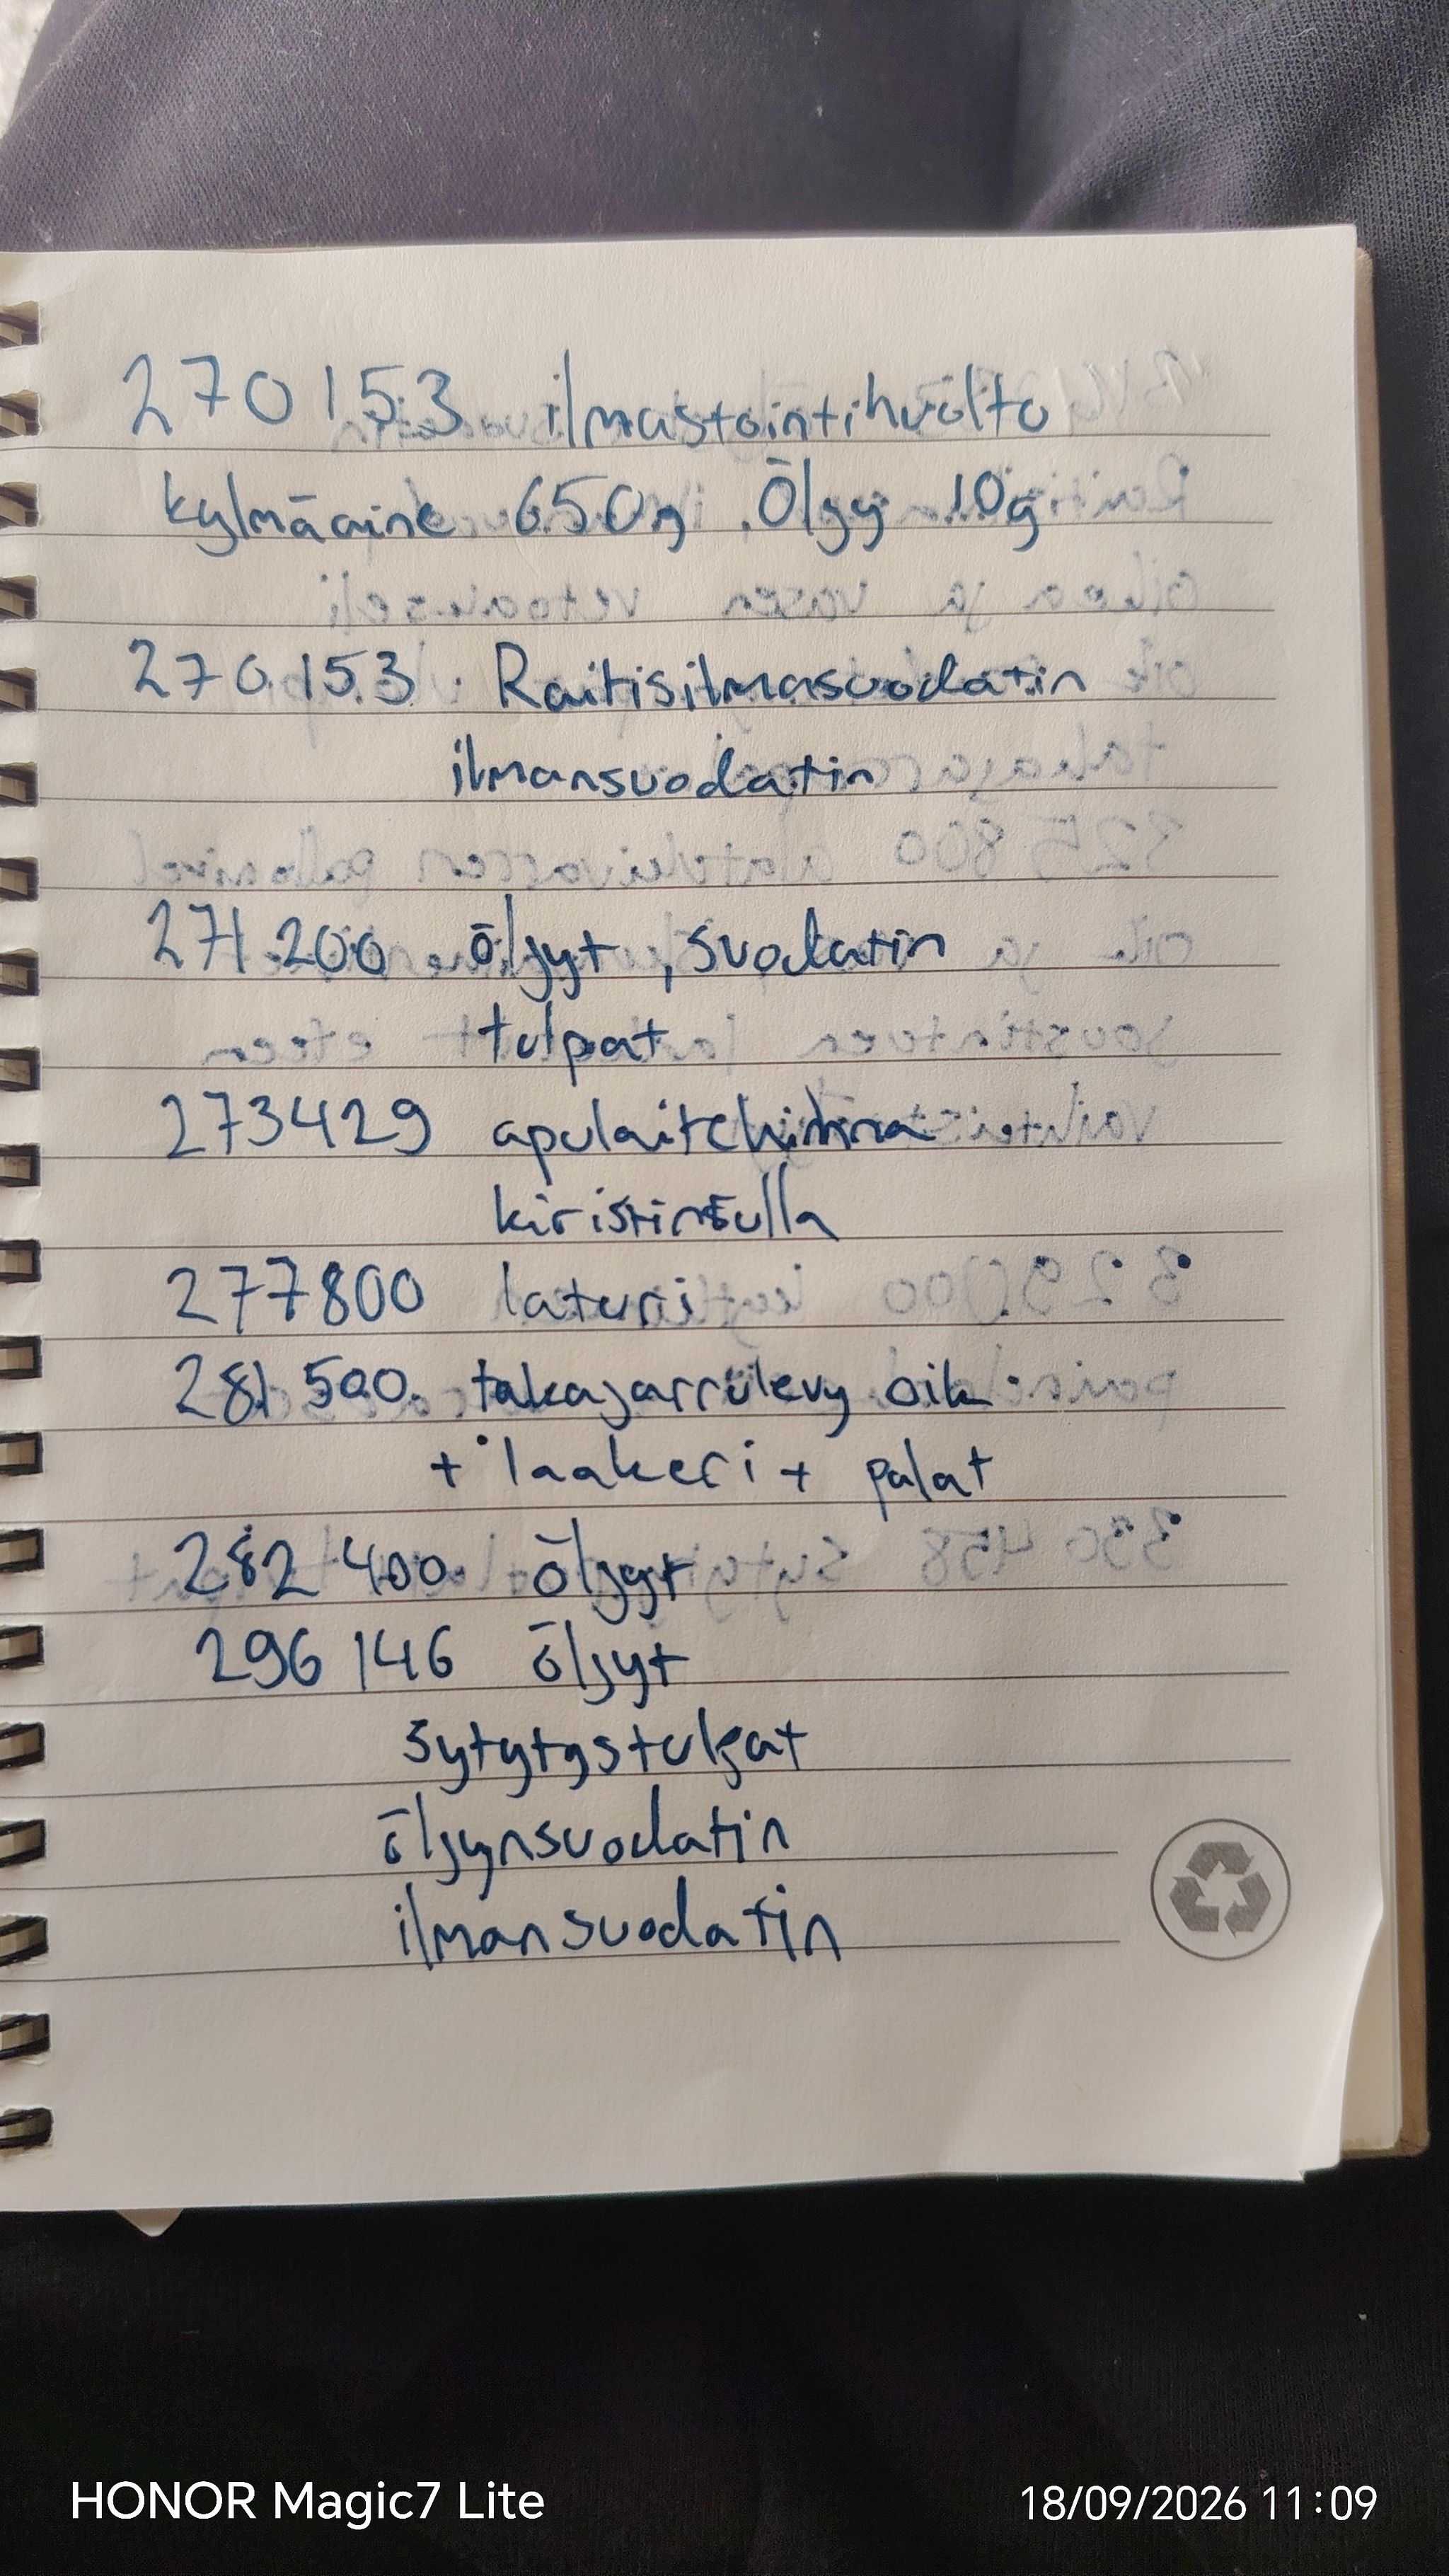 270153 ilmastointihuolto
kylmäaine 650g. Öljy 10g
270153. Raitisilmasuodatin
ilmansuodatin
271200 öljyt, suodatin
tulpat
273429 apulaitehihna
kiristinrulla
277800 laturi
281 500. takajarrulevy oik.
+ laakeri + palat
282 400. öljyt
296 146 öljyt
sytytystulpat
öljynsuodatin
ilmansuodatin
HONOR Magic7 Lite
18/09/2026 11:09